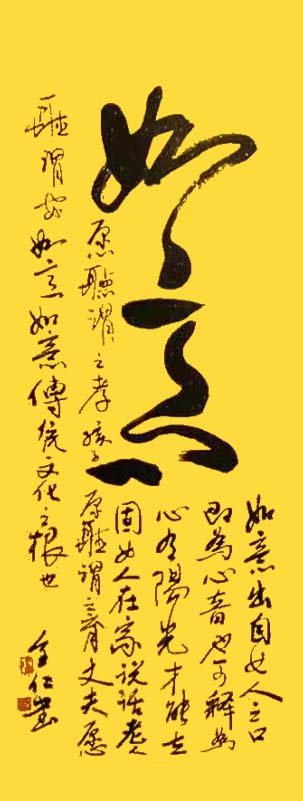 如意
如意出自女人之口
即為心音也可釋為
心有陽光才能
固女人在家説話老人
愿聽謂之孝孩子愿聽謂之育丈夫愿
聽謂如意如意傳統文化之根也
仁書